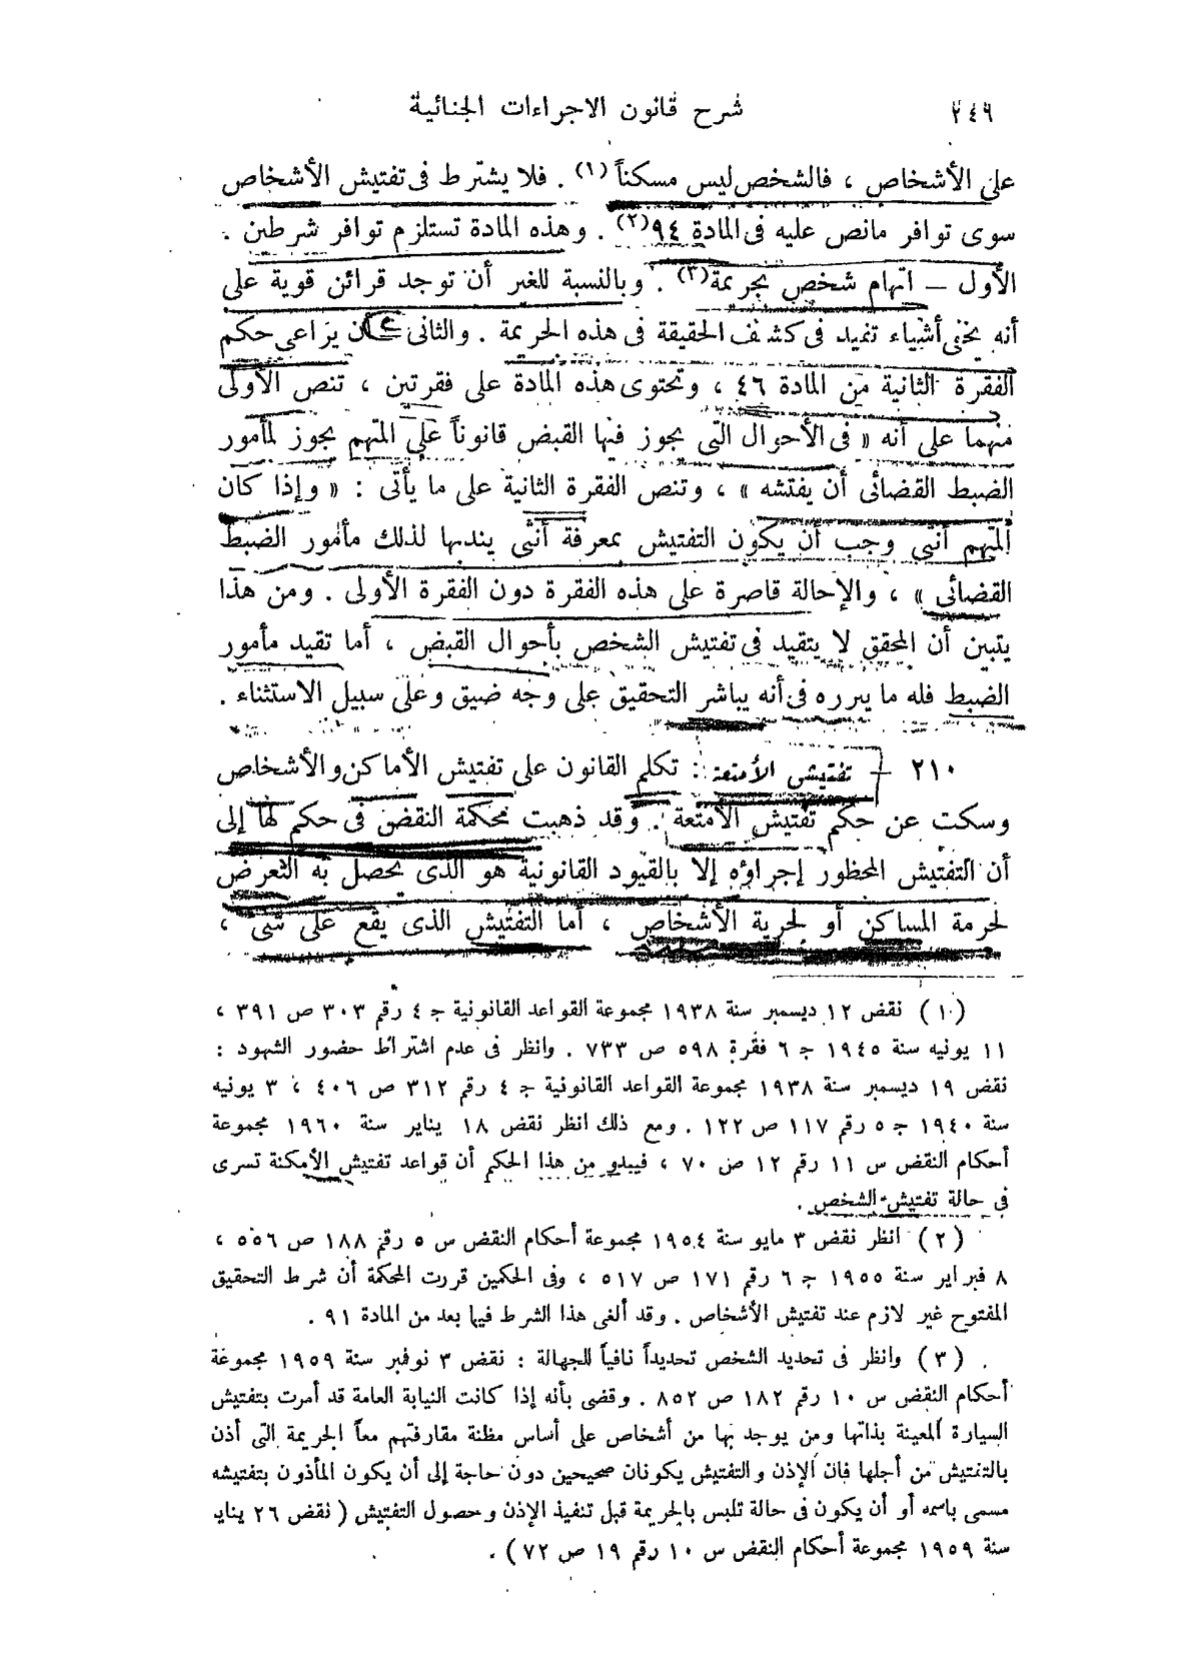 ٢٤٩ شرح قانون الاجراءات الجنائية
على الأشخاص ، فالشخص ليس مسكناً (١) . فلا يشترط فى تفتيش الأشخاص
سوى توافر مانص عليه فى المادة ٩٤(٢) . وهذه المادة تستلزم توافر شرطين .
الأول – اتهام شخص بجريمة(٣) . وبالنسبة للغير أن توجد قرائن قوية على
أنه يخفى أشياء تفيد فى كشف الحقيقة فى هذه الجريمة . والثانى – أن يراعى حكم
الفقرة الثانية من المادة ٤٦ ، وتحتوى هذه المادة على فقرتين ، تنص الأولى
منهما على أنه « فى الأحوال التى يجوز فيها القبض قانوناً على المتهم يجوز لمأمور
الضبط القضائى أن يفتشه » ، وتنص الفقرة الثانية على ما يأتى : « وإذا كان
المتهم أنثى وجب أن يكون التفتيش بمعرفة أنثى يندبها لذلك مأمور الضبط
القضائى » ، والإحالة قاصرة على هذه الفقرة دون الفقرة الأولى . ومن هذا
يتبين أن المحقق لا يتقيد فى تفتيش الشخص بأحوال القبض ، أما تقيد مأمور
الضبط فله ما يبرره فى أنه يباشر التحقيق على وجه ضيق وعلى سبيل الاستثناء .
٢١٠ – تفتيش الأمتعة : تكلم القانون على تفتيش الأماكن والأشخاص
وسكت عن حكم تفتيش الأمتعة . وقد ذهبت محكمة النقض فى حكم لها إلى
أن التفتيش المحظور إجراؤه إلا بالقيود القانونية هو الذى يحصل به التعرض
لحرمة المساكن أو لحرية الأشخاص ، أما التفتيش الذى يقع على شئ ،
(١) نقض ١٢ ديسمبر سنة ١٩٣٨ مجموعة القواعد القانونية ج ٤ رقم ٣٠٣ ص ٣٩١ ،
١١ يونيه سنة ١٩٤٥ ج ٦ فقرة ٥٩٨ ص ٧٣٣ . وانظر فى عدم اشتراط حضور الشهود :
نقض ١٩ ديسمبر سنة ١٩٣٨ مجموعة القواعد القانونية ج ٤ رقم ٣١٢ ص ٤٠٦ ، ٣ يونيه
سنة ١٩٤٠ ج ٥ رقم ١١٧ ص ١٢٢ . ومع ذلك انظر نقض ١٨ يناير سنة ١٩٦٠ مجموعة
أحكام النقض س ١١ رقم ١٢ ص ٧٠ ، فيبدو من هذا الحكم أن قواعد تفتيش الأمكنة تسرى
فى حالة تفتيش الشخص .
(٢) انظر نقض ٣ مايو سنة ١٩٥٤ مجموعة أحكام النقض س ٥ رقم ١٨٨ ص ٥٥٦ ،
٨ فبراير سنة ١٩٥٥ ج ٦ رقم ١٧١ ص ٥١٧ ، وفى الحكمين قررت المحكمة أن شرط التحقيق
المفتوح غير لازم عند تفتيش الأشخاص . وقد ألغى هذا الشرط فيما بعد من المادة ٩١ .
(٣) وانظر فى تحديد الشخص تحديداً نافياً للجهالة : نقض ٣ نوفمبر سنة ١٩٥٩ مجموعة
أحكام النقض س ١٠ رقم ١٨٢ ص ٨٥٢ . وقضى بأنه إذا كانت النيابة العامة قد أمرت بتفتيش
السيارة المعينة بذاتها ومن يوجد بها من أشخاص على أساس مظنة مقارفتهم معاً الجريمة التى أذن
بالتفتيش من أجلها فان الإذن والتفتيش يكونان صحيحين دون حاجة إلى أن يكون المأذون بتفتيشه
مسمى باسمه أو أن يكون فى حالة تلبس بالجريمة قبل تنفيذ الإذن وحصول التفتيش ( نقض ٢٦ يناير
سنة ١٩٥٩ مجموعة أحكام النقض س ١٠ رقم ١٩ ص ٧٢ ) .